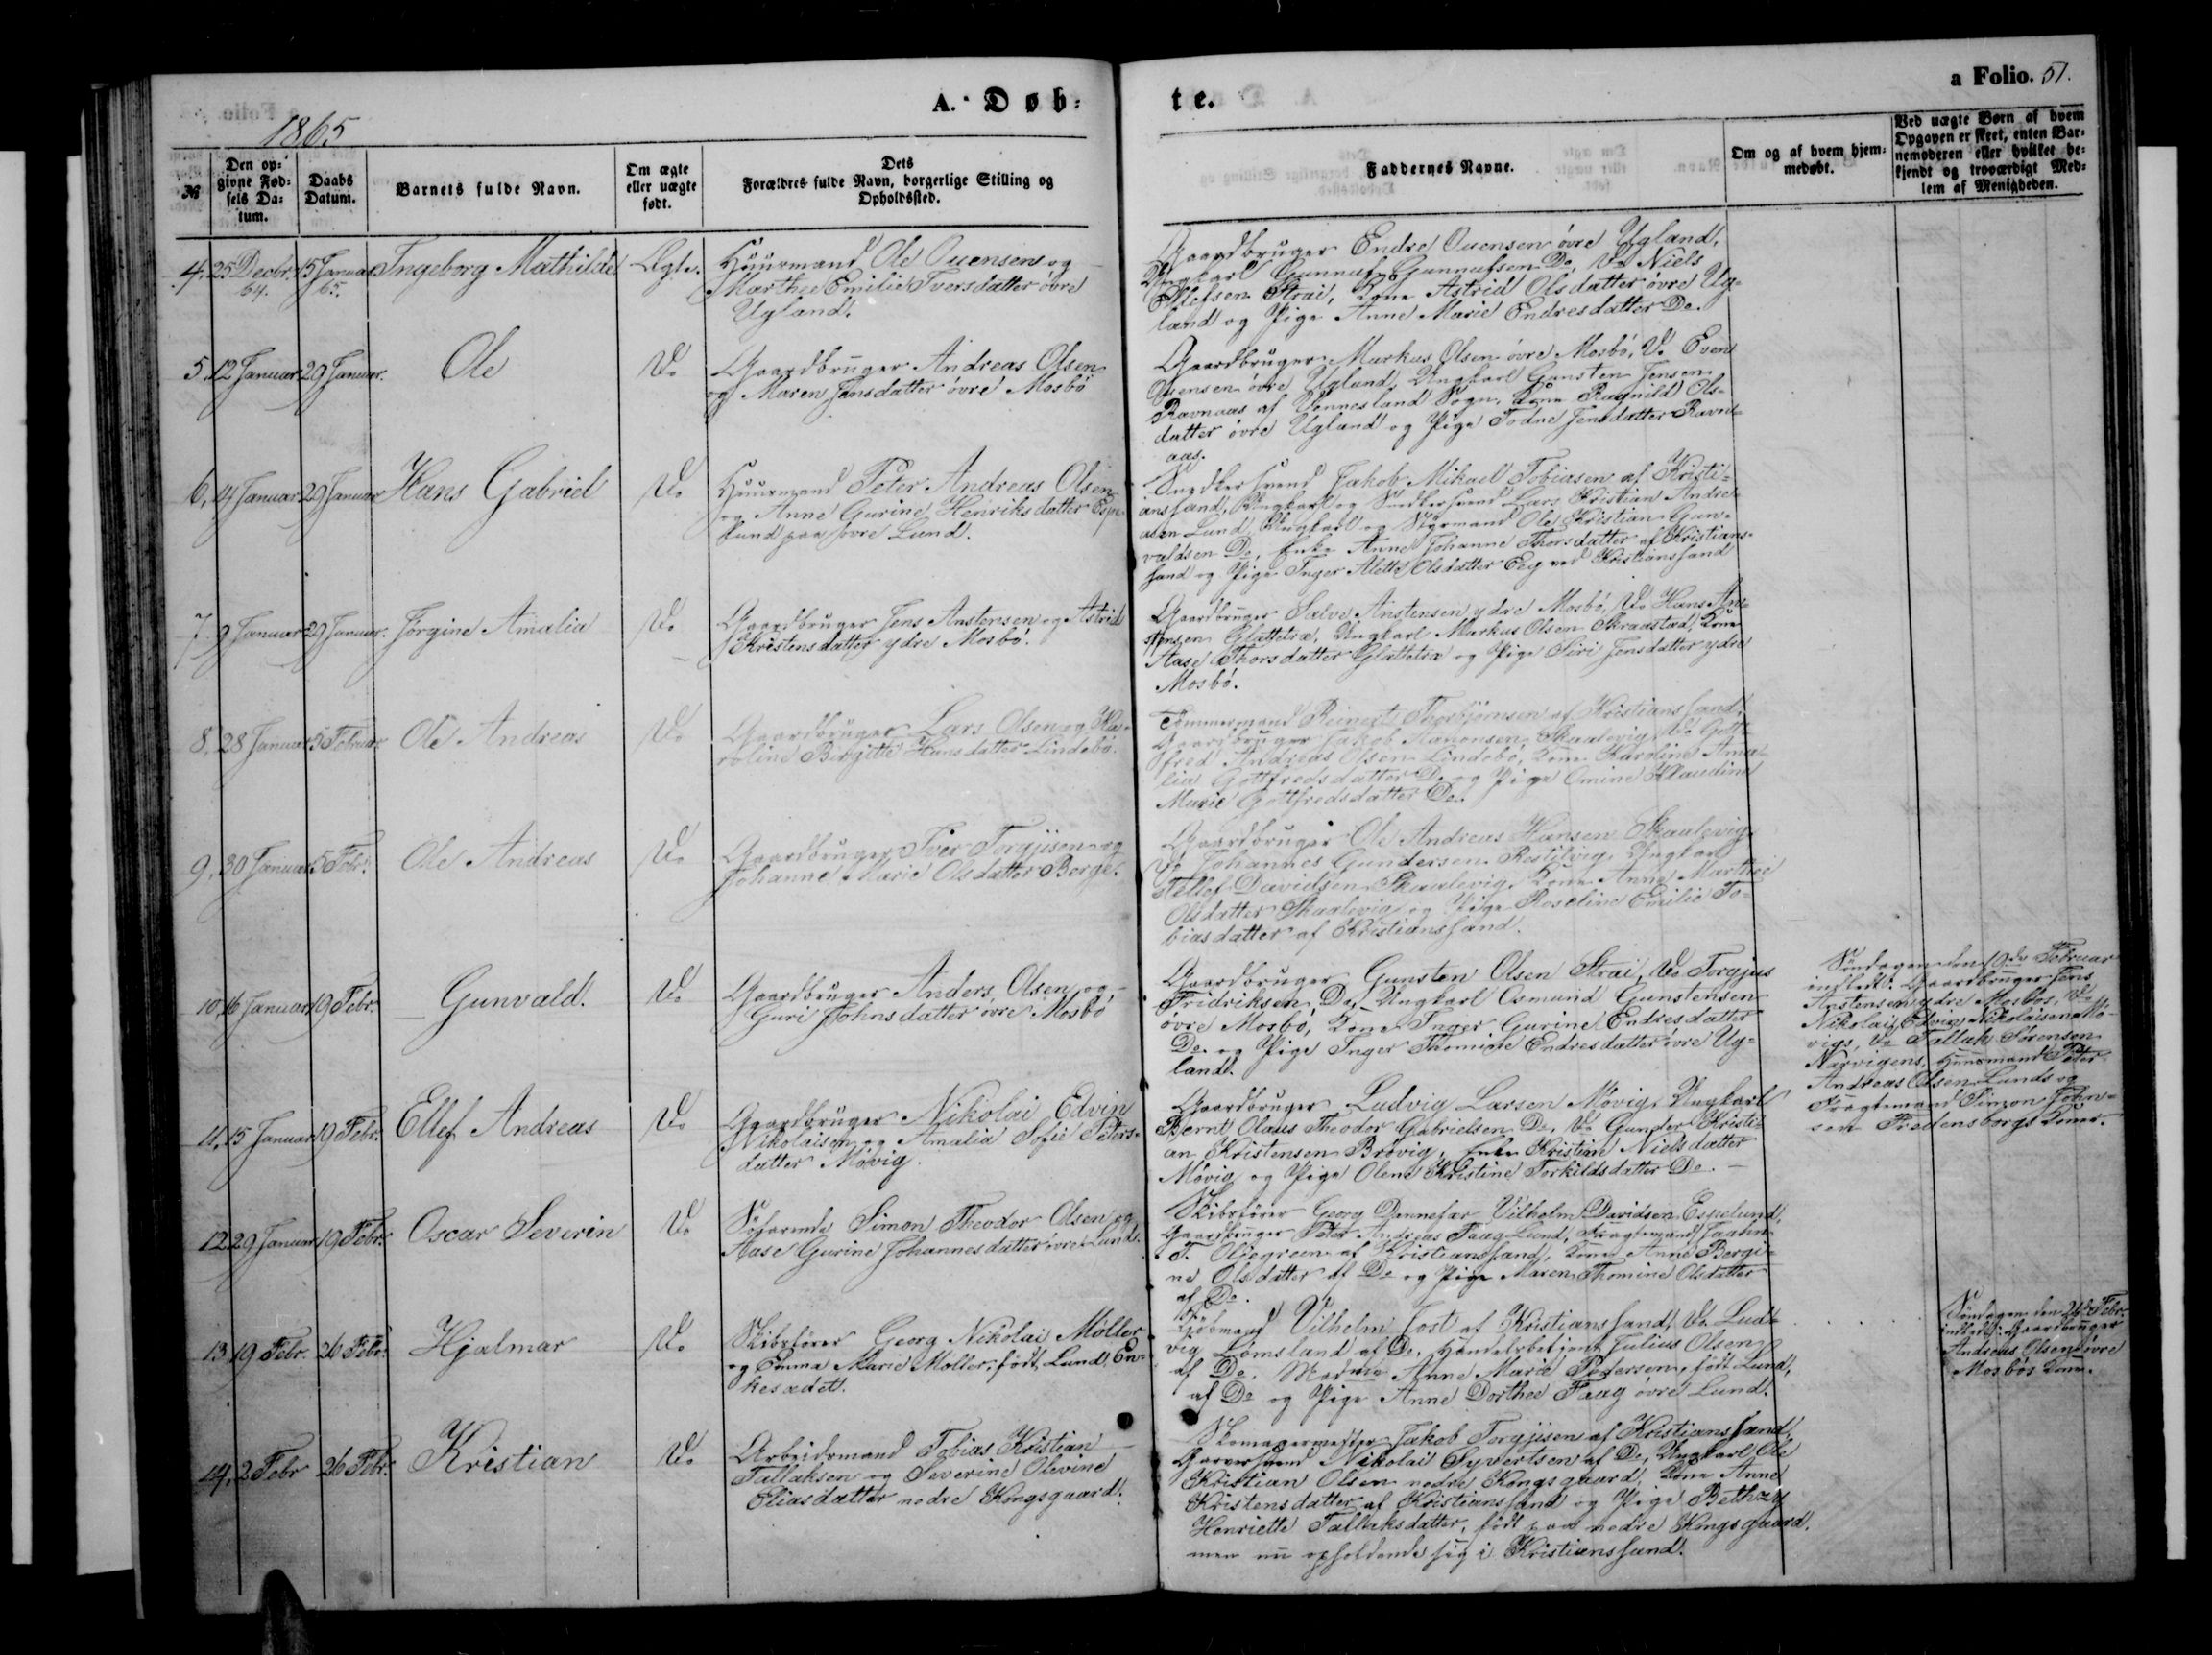 A. Døb:
te.
a Folio. 51.
1865
№
Den op-
givne Fød-
sels Da-
tum.
Daabs
Datum.
Barnets fulde Navn.
Om ægte
eller uægte
født.
Dets
Forældres fulde Navn, borgerlige Stilling og
Opholdssted.
Faddernes Navne.
Om og af hvem hjem-
medøbt.
Ved uægte Børn af hvem
Opgaven er skeet, enten Bar-
nemoderen eller hvilket be-
kjendt og troværdigt Med-
lem af Menigheden.
4. 25 Decbr. 64. 15 Januar 65. Ingeborg Mathilde Ægte.
Huusmand Ole Ouensen og
Marthe Emilie Iversdatter øvre
Ugland.
Gaardbruger Endre Ouensen øvre Ugland,
Ungkarl Gunnuf Gunnufsen Do, Do Niels
Ellefsen Strai, Kone Astrid Olsdatter øvre Ug-
land og Pige Anne Marie Endresdatter Do.
5. 12 Januar 29 Januar. Ole Do
Gaardbruger Andreas Olsen
og Maren Jensdatter øvre Mosbø
Gaardbruger Markus Olsen øvre Mosbø, Do Even
Ouensen øvre Ugland, Ungkarl Gunsten Jensen
Ravnaas af Vennesland Sogn, Kone Ragnild Ols-
datter øvre Ugland og Pige Todne Jensdatter Ravn-
aas.
6. 4 Januar 29 Januar Hans Gabriel Do
Huusmand Peter Andreas Olsen
og Anne Gurine Henriksdatter
paa øvre Lund.
Snedkersvend Jakob Mikael Tobiasen af Kristi-
anssand, Ungkarl og Snedkersvend Lars Kristian Andre-
asen Lund, Ungkarl og Styrmand Ole Kristian Gun-
valdsen Do, Enke Anne Johanne Thorsdatter af Kristians-
sand og Pige Inger Alette Olsdatter Eeg ved Kristianssand
7. 9 Januar 29 Januar. Jørgine Amalia Do
Gaardbruger Jens Anstensen og Astrid
Kristensdatter ydre Mosbø.
Gaardbruger Salve Anstensen ydre Mosbø, Do Hans An-
stensen Glattetræ, Ungkarl Markus Olsen Skraastad, Kone
Aase Thorsdatter Glattetræ og Pige Siri Jensdatter ydre
Mosbø.
8. 28 Januar 5 Februar Ole Andreas Do
Gaardbruger Lars Olsen og Ka-
roline Birgitte Hansdatter Lindebø.
Tømmermand Reinert Thorbjørnsen af Kristianssand,
Gaardbruger Jakob Aanonsen Skaalevig, Do Gott-
fred Andreas Olsen Lindebø, Kone Karoline Ama-
lia Gottfredsdatter Do og Pige Omine Klaudine
Marie Gottfredsdatter Do.
9. 30 Januar 5 Febr. Ole Andreas Do
Gaardbruger Iver Torgjisen og
Johanne Marie Olsdatter Berge.
Gaardbruger Ole Andreas Hansen Skaalevig,
Do Johannes Gundersen Rostilvig, Ungkarl
Tellef Davidsen Skaalevig, Kone Anne Marthee
Olsdatter Skaalevig og Pige Roseline Emilie To-
biasdatter af Kristianssand.
10. 16 Januar 19 Febr. Gunvald. Do
Gaardbruger Anders Olsen og
Guri Johnsdatter øvre Mosbø
Gaardbruger Gunsten Olsen Strai, Do Torgjus
Fridriksen Do, Ungkarl Osmund Gunstensen
øvre Mosbø, Kone Inger Gurine Endresdatter
Do. og Pige Inger Thomine Endresdatter øvre Ug-
land.
Søndagen den 19de Februar
indledt: Gaardbruger Jens
Anstensen ydre Mosbøs, Do
Nikolai Edvin Nikolaisen Mø-
vigs, Do Tallak Sørensen
Narvigens, Huusmand Peter
Andreas Olsen Lunds og
Fragtemand Simon John-
sen Fredensborgs Koner.
11. 15 Januar 19 Febr. Ellef Andreas Do
Gaardbruger Nikolai Edvin
Nikolaisen og Amalia Sofie Peters-
datter Møvig.
Gaardbruger Ludvig Larsen Møvig, Ungkarl
Bernt Olaus Theodor Gabrielsen Do, Do Gunder Kristi-
an Kristensen Brøvig, Enke Kristine Nielsdatter
Møvig og Pige Olene Kristine Torkildsdatter Do.
12. 29 Januar 19 Febr. Oscar Severin Do
Søfarende Simon Theodor Olsen og
Aase Gurine Johannesdatter øvre Lund.
Skibsfører Georg Dennefær Vilhelm Davidsen Espelund,
Gaardbruger Peter Andreas Faag Lund, Fragtemand
T. Oljegreen af Kristianssand, Kone Anne Bergi-
ne Olsdatter af Do og Pige Maren Thomine Olsdatter
af Do.
13. 19 Febr. 26 Febr. Hjalmar Do
Skibsfører Georg Nikolai Møller
og Emma Marie Møller, født Lund, En-
kesædet.
Kjøbmand Vilhelm Jost af Kristianssand, Do Lud-
vig Lomsland af Do, Handelsbetjent Julius Olsen
af Do, Madame Anne Marie Pedersen, født Lund,
af Do og Pige Anne Dorthea Faag øvre Lund.
Søndagen den 26de Febr.
indledt: Gaardbruger
Andreas Olsen øvre
Mosbøs Kone.
14. 2 Febr 26 Febr. Kristian Do
Arbeidsmand Tobias Kristian
Tallaksen og Severine Olevine
Eliasdatter nedre Kongsgaard.
Skomagermester Jakob Torgjisen af Kristianssand,
Garversvend Nikolai Syvertsen af Do, Ungkarl Ole
Kristian Olsen nedre Kongsgaard, Kone Anne
Kristensdatter af Kristianssand og Pige Bethzy
Henriette Tallaksdatter, født paa nedre Kongsgaard,
men nu opholdende sig i Kristianssand.